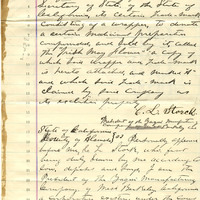 Secretary of State of the State of
California, its certain Trade Mark
consisting of a wrapper, to denote
a certain medicinal preparation
compounded and sold by it called
"The Irish May Flower" a copy of
which said wrapper and Trade Mark
is hereto attached, and marked "A"
and which said Trade Mark is
claimed by said Company as
its exclusive property.
C. L. Storck
President of the Jayes Manufacturing
State of California
County of Alameda } SS Personally appeared
before me C. L. Storck, who first
being duly sworn by me according to
law, deposes and says I am the
President of the Jayes Manufacturing
Company, of West Berkeley California